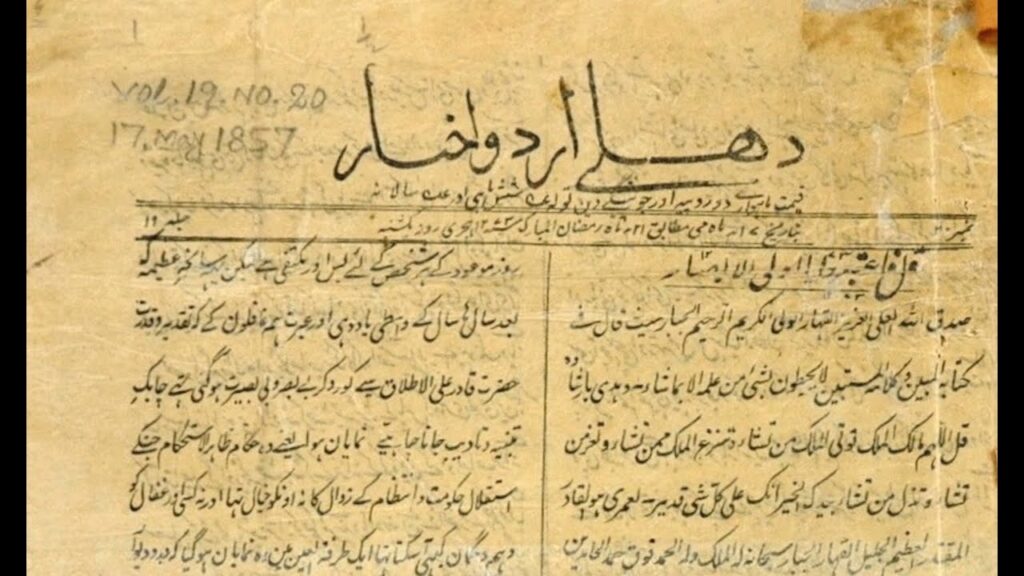 Vol. 19. No. 20
17. May 1857
دهلی اردو اخبار
قیمت ماہواری دو روپیہ اور جو پیشگی دین تو لہ عہ ششماہی اور عہ سالانہ
نمبر ۲۰
بتاریخ ۱۷ ماہ می مطابق ۲۱ ماہ رمضان المبارک ۱۲۷۳ ہجری روز یکشنبہ
جلد ۱۹
فاعتبروا یا اولی الابصار
صدق الله العلی العزیز القهار المولی الکریم الرحیم الجبار حیث قال فی
کتابه المبین و کلامه المستبین لا یحیطون بشئ من علمه الا بما شاء و یهدی به من یشاء
قل اللهم مالک الملک توتی الملک من تشاء و تنزع الملک ممن تشاء و تعز من
تشاء و تذل من تشاء بیدک الخیر انک علی کل شی قدیر لعمری هو القادر
المقتدر العظیم الجلیل القهار الجبار سبحانه له الملک وله الحمد فوق حمد الحامدین
روز موعود کے ہر شخص کے لئے بس اور مکتفی ہے لیکن یہ سانحہ عظیمہ کہ
بعد سالہا سال کے واسطی یاد دہی اور عبرت ہم غافلون کے کہ تقدیر و قدرت
حضرت قادر علی الاطلاق سے کور و کر بے بصر و بی بصیرت ہو گئی تہے جانکہ
تنبیہ و تادیب جانا چاہیے نمایان ہوا یعنے وہ حکام ظاہر الاستحکام جنکے
استقلال حکومت و انتظام کے زوال کا نہ اونکو خیال تہا اور نہ کسی ذرغفال کو
وہم و گمان کبہی آسکتا تہا ایک طرفۃ العین مین وہ نمایان ہو گیا کہ درودیوار